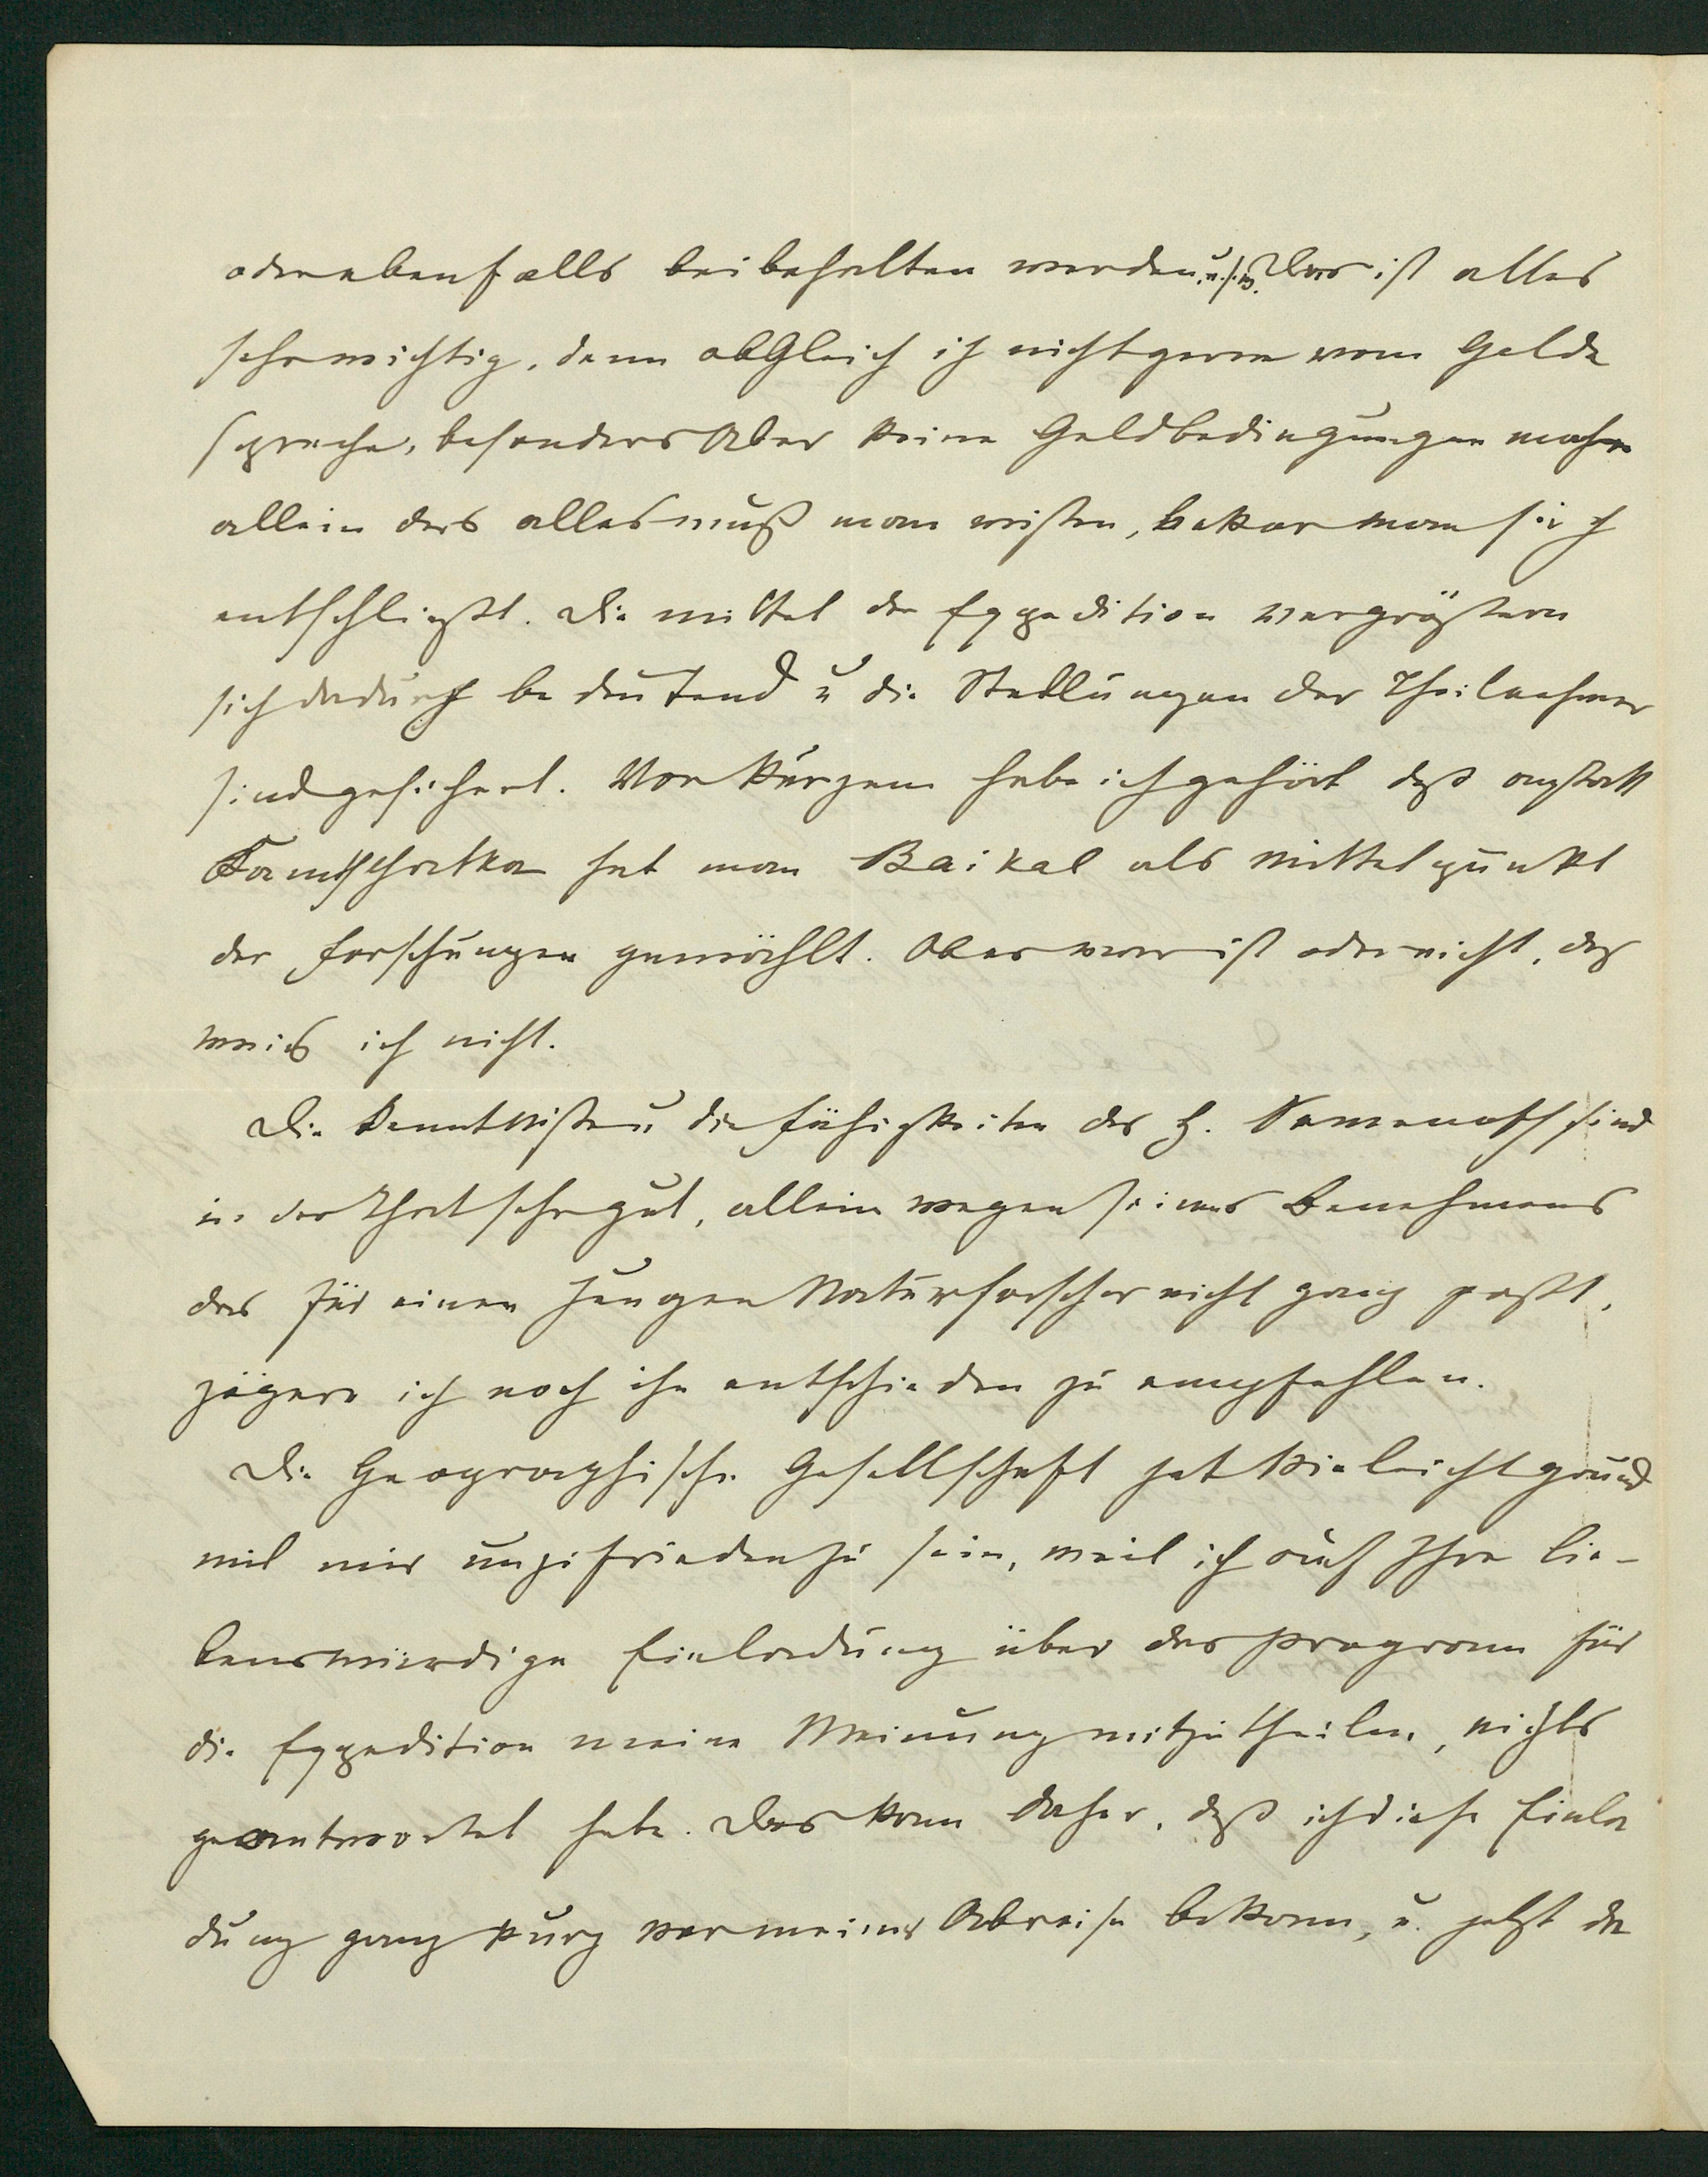 oder ebenfalls beibehalten werden u.s.w. Das ist alles
sehr wichtig, denn obgleich ich nicht gerne vom Gelde
spreche, besonders aber keine Geldbedingungen mache
allein das alles muß man wissen, bevor man sich
entschließt. Die Mittel der Expedition vergrößern
sich dadurch bedeutend u die Stellungen der Theilnehmer
sind gesichert. Vor Kurzem habe ich gehört daß anstatt
Kamtschatka hat man Baikal als Mittelpunkt
der Forschungen gewählt. Ob es war ist oder nicht, das
weis ich nicht.
Die Kenntnisse u. die Fähigkeiten des H. Semenoff sind
in der That sehr gut, allein wegen seines Benehmens
das für einen jungen Naturforscher nicht ganz paßt,
zögere ich noch ihn entschieden zu empfehlen.
Die Geographische Gesellschaft hat vieleicht grund
mit mir unzufrieden zu sein, weil ich auf Ihre lie-
benswürdige Einladung über das Program für
die Expedition meine Meinung mitzutheilen, nichts
geantwortet habe. Das kam daher, daß ich diese Einla
dung ganz kurz vor meiner Abreise bekam, u. jetzt da